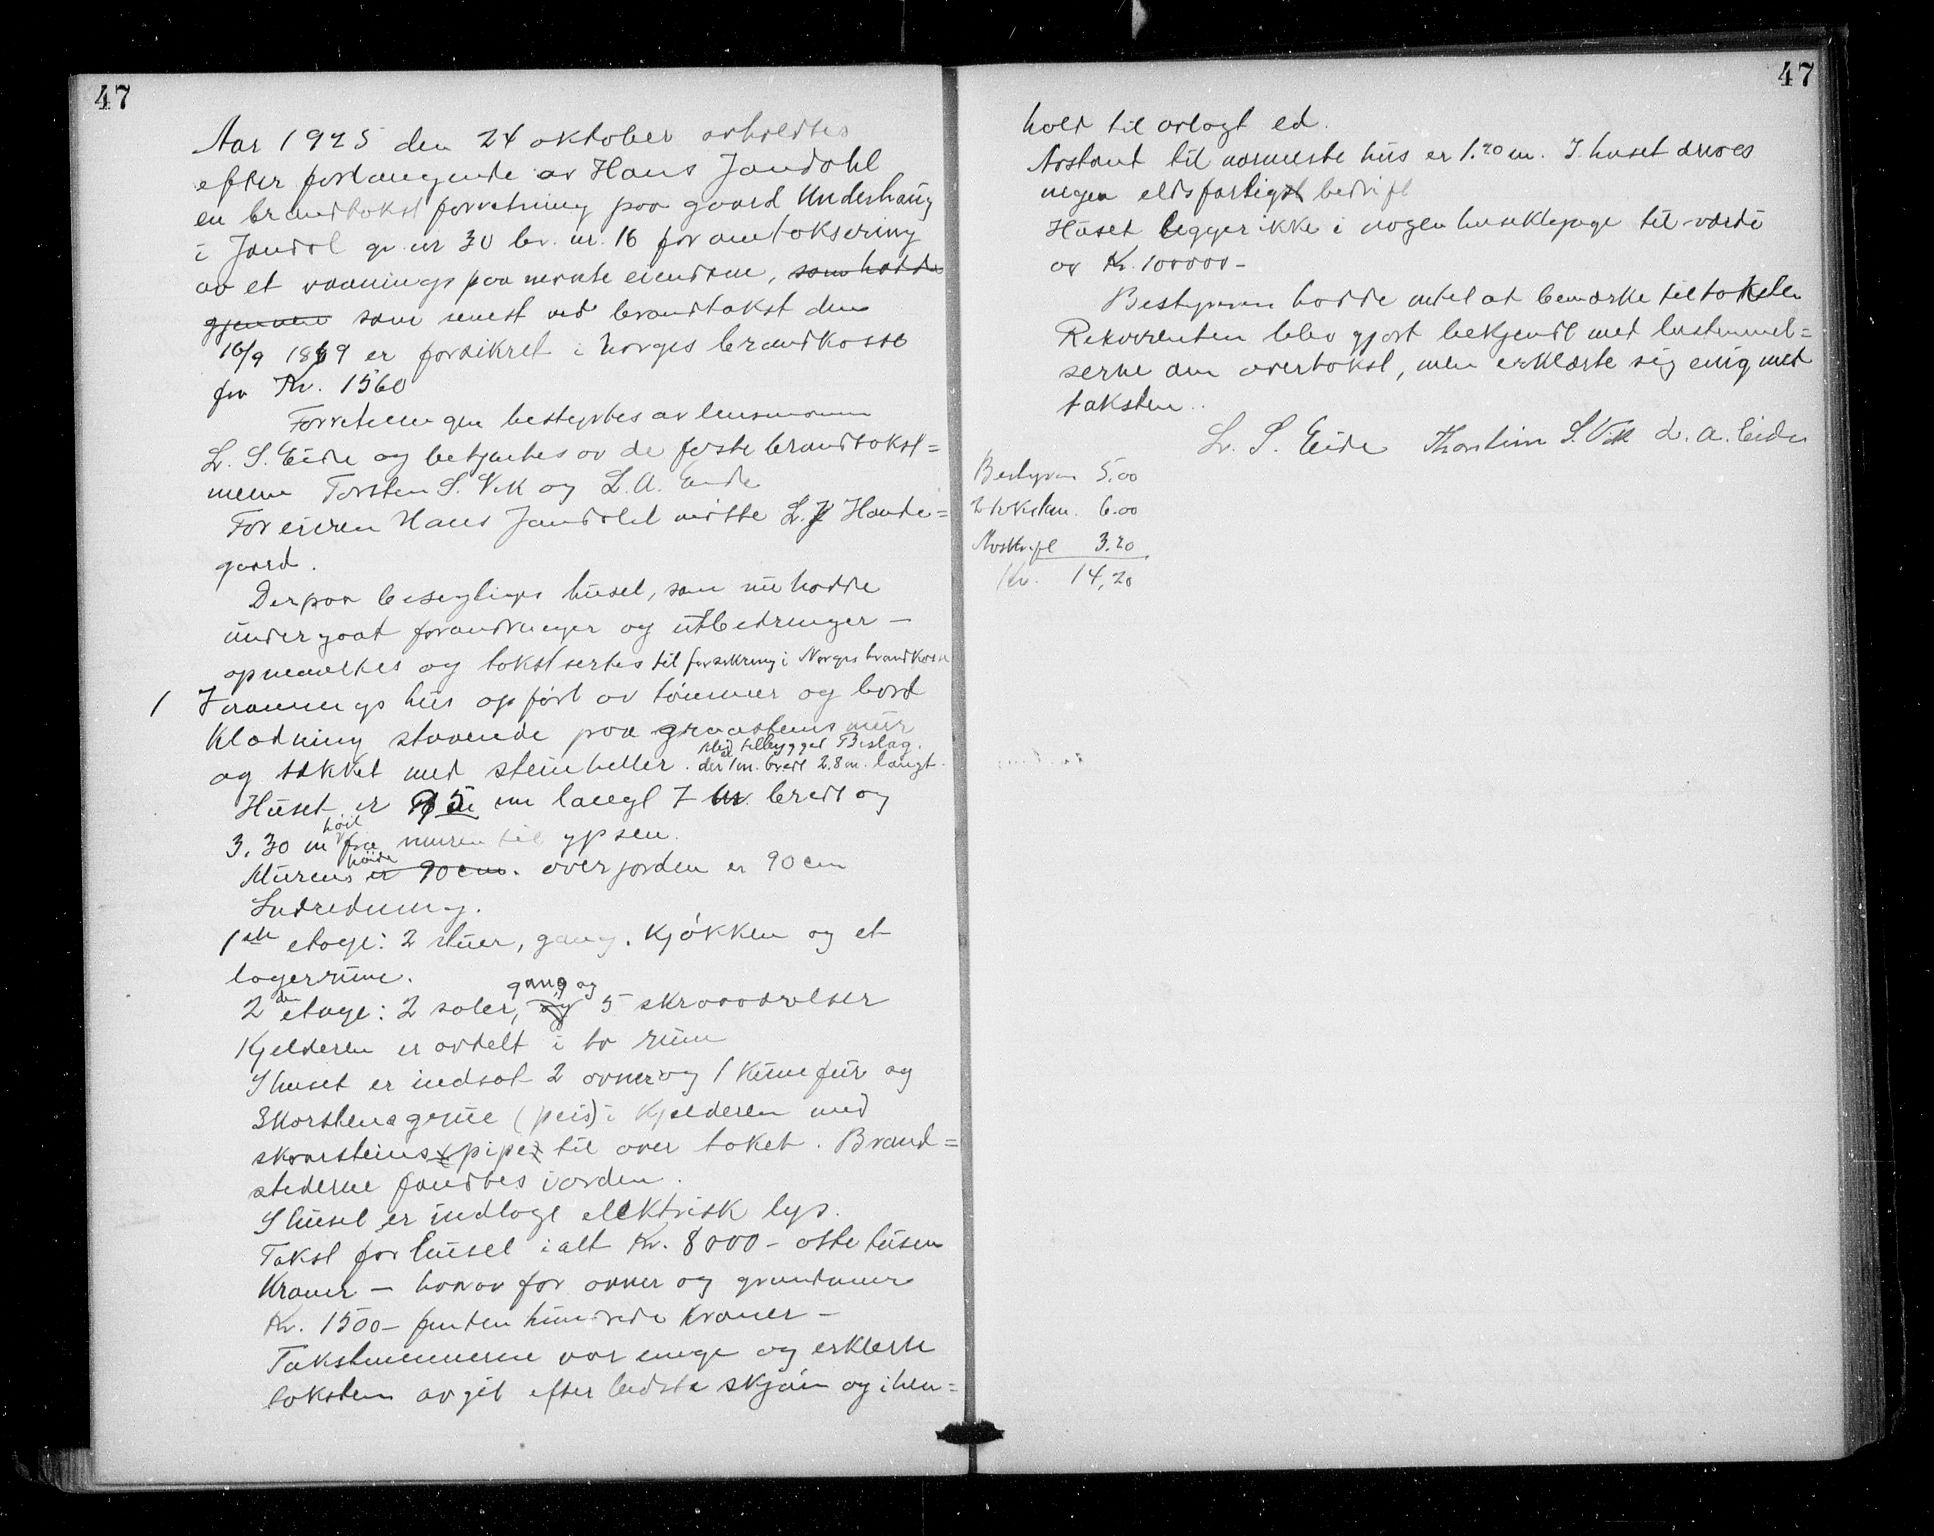 47
Aar 1925 den 24 oktober avholdtes
efter forlangende av Hans Jondahl
en brandtakst forretning paa gaard Underhaug
i Jondal gr. nr 30 br. nr. 16 for omtaksering
av et vaanings paa nevnte eiendom, som hadde
gjennem som senest ved brandtakst den
16/9 1869 er forsikret i Norges brandkasse
for Kr. 1560
Forretningen bestyrtes av lensmann
L. S. Eide og betjentes av de faste brandtakst=
menn Torsten S. Vik og L. A. Eide
For eieren Hans Jondahl møtte L. J Hande=
gaard.
Derpaa besigtiges huset, som nu hadde
undergaat forandringer og utbedringer —
opmaaltes og takstsertes til forsikring i Norges brandkasse
1 Vaanings hus opført av tømmer og bord
klædning staaende paa graastens mur
Med tilbygget Bislag.
og tækket med steinheller. der er 1 m. bredt 2.8 m. langt.
Huset er 5 m langt 7 m. bredt og
høit
3.30 m fra muren til gypsen.
høide
Murens er 90 cm. over jorden er 90 cm
Indredning.
1ste etage: 2 stuer, gang, kjøkken og et
lagerrum.
gang og
2den etage: 2 saler, og 5 skraaværelser
Kjelderen er avdelt i to rum
I huset er indsat 2 ovner og 1 kumfur og
Skorstensgrue (peis) i kjelderen med
skorsteins pipe til over taket. Brand=
stederne fandtes i orden.
I huset er indlagt elektrisk lys.
Takst for huset ialt Kr. 8000 – otte tusen
Kroner — hvorav for ovner og grundmur
Kr. 1500 – femten hundrede kroner –
Takstmennerne var enige og erklerte
taksten avgit efter bedste skjøn og i hen=
47
hold til avlagt ed.
Avstant til nærmeste hus er 1.20 m. I huset drives
ingen eldsfarligst bedrift
Huset ligger ikke i nogen husklynge til værdi
av Kr. 100000 –
Bestyreren hadde intet at bemærke til taksten
Rekvirenten blev gjort bekjendt med bestemmel=
serne om overtakst, men erklærte sig enig med
taksten.
L. S. Eide Thorstein S. Vik L. A. Eide
Bestyrer 5.00
2 takstm. 6.00
Avskrift 3.20
Kr. 14,20